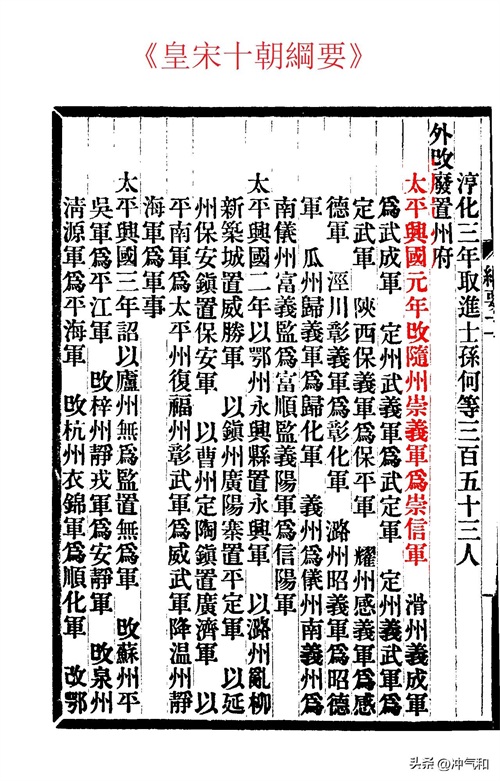 《皇宋十朝綱要》
淳化三年取進士孫何等三百五十三人
外改廢置州府
太平興國元年改隨州崇義軍爲崇信軍　滑州義成軍
爲武成軍　定州武義軍爲武定軍　定州義武軍爲
定武軍　陝西保義軍爲保平軍　耀州感義軍爲感
德軍　涇川彰義軍爲彰化軍　潞州昭義軍爲昭德
軍　瓜州歸義軍爲歸化軍　義州爲儀州南義州爲
南儀州富義監爲富順監義陽軍爲信陽軍
太平興國二年以鄂州永興縣置永興軍　以潞州亂柳
新築城置威勝軍　以鎮州廣陽寨置平定軍　以延
州保安鎮置保安軍　以曹州定陶鎮置廣濟軍　以
平南軍爲太平州復福州彰武軍爲威武軍降温州靜
海軍爲軍事
太平興國三年詔以廬州無爲監置無爲軍　改蘇州平
吳軍爲平江軍　改梓州靜戎軍爲安靜軍　改泉州
清源軍爲平海軍　改杭州衣錦軍爲順化軍　改鄂
头条 @冲气和